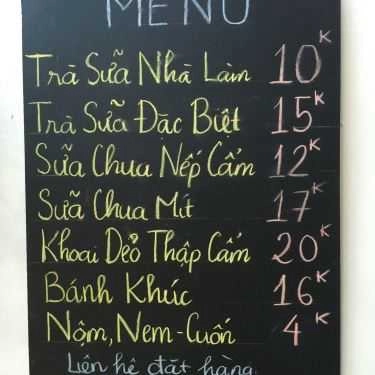 MENU
Trà Sữa Nhà Làm 10K
Trà Sữa Đặc Biệt 15K
Sữa Chua Nếp Cẩm 12K
Sữa Chua Mít 17K
Khoai Dẻo Thập Cẩm 20K
Bánh Khúc 16K
Nộm, Nem-Cuốn 4K
Liên hệ đặt hàng